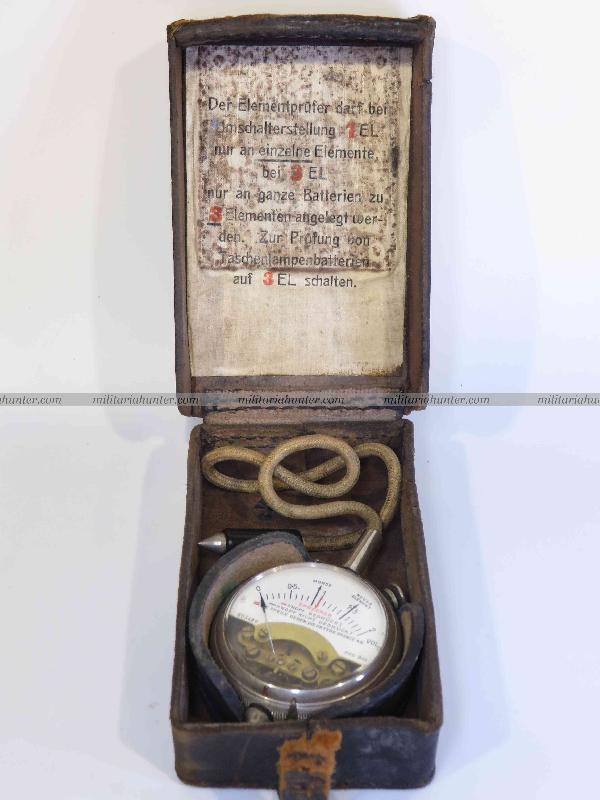 Der Elementprüfer darf bei
Umschalterstellung 1 EL
nur an einzelne Elemente,
bei 3 EL
nur an ganze Batterien zu
3 Elementen angelegt wer-
den. Zur Prüfung von
Taschenlampenbatterien
auf 3 EL schalten.
militariahunter.com militariahunter.com militariahunter.com militariahunter.com militariahunter.com
0 0.5 1 1.5 2
MORSE
SPRECHER
VOL